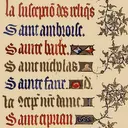 la suscepcion des reliq̃s
Saint ambroise.
Sainte barbe.
Saint nicholas
Sainte fare.
la 9cepc̃ nr̃e dame
Saint ciprian